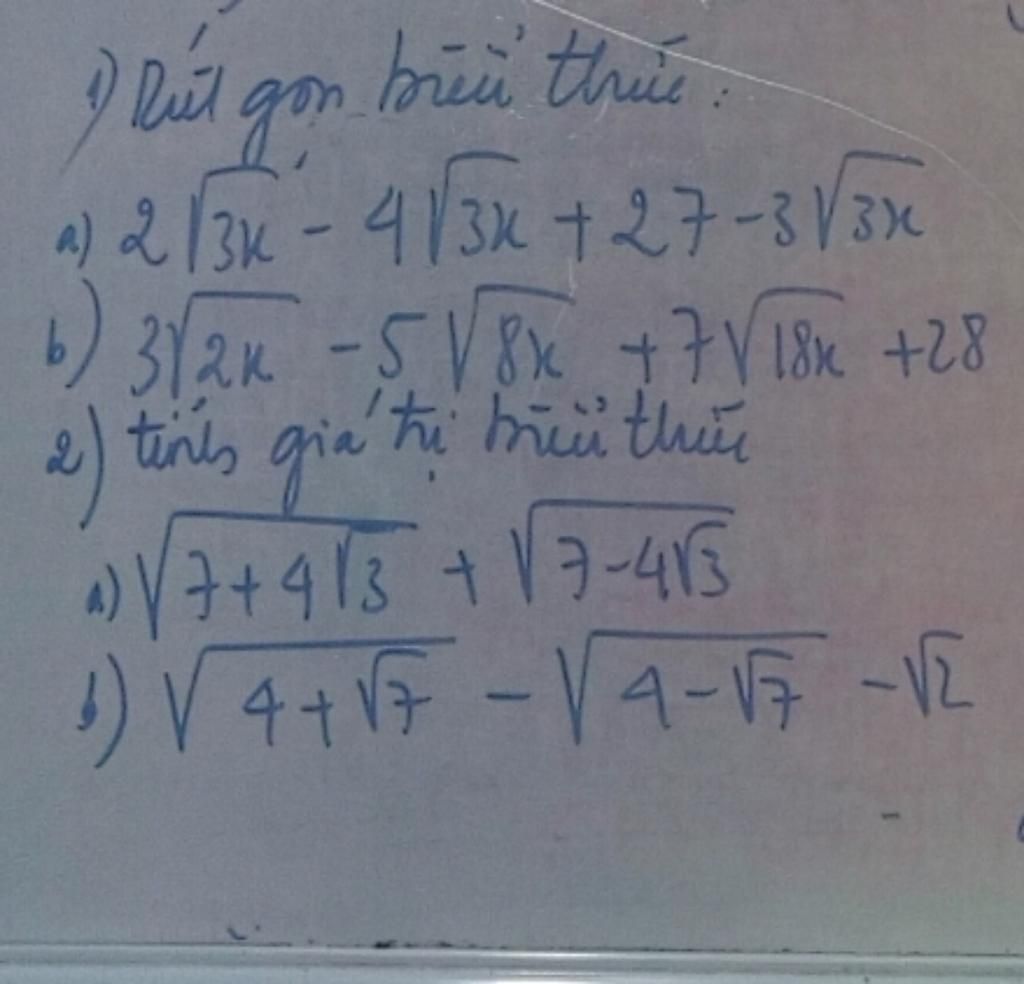 1) Rút gọn biểu thức:
a) 2√3x - 4√3x + 27 - 3√3x
b) 3√2x - 5√8x + 7√18x + 28
2) tính giá trị biểu thức
a) √(7+4√3) + √(7-4√3)
b) √(4+√7) - √(4-√7) - √2